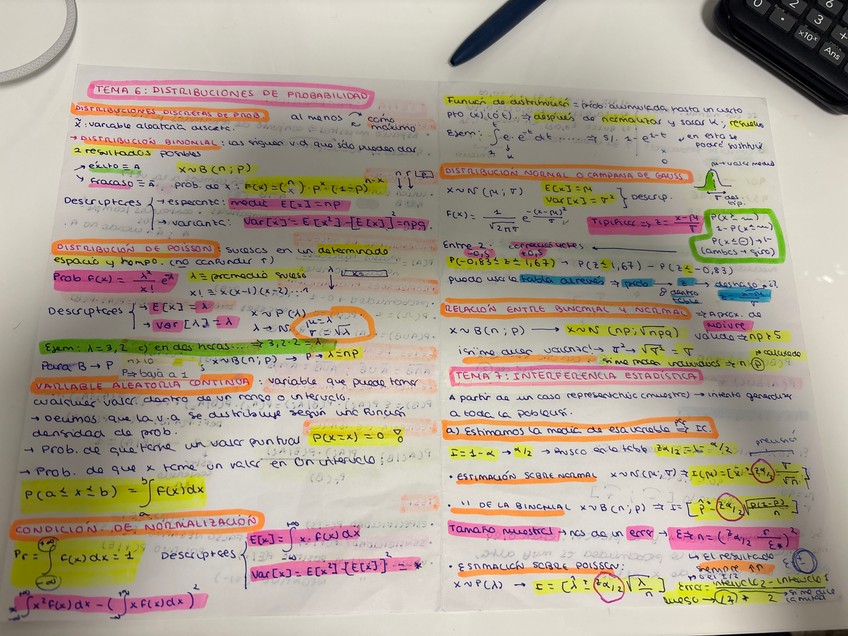 TEMA 6: DISTRIBUCIONES DE PROBABILIDAD
DISTRIBUCIONES DISCRETAS DE PROB.
x̃: variable aleatoria discreta.
al menos
como máximo
→ DISTRIBUCIÓN BINOMIAL: v.a que sólo pueden dar
2 resultados posibles
→ éxito = A
→ fracaso = Ā
X~B(n;p)
prob. de x:
Descriptores
→ esperanza: media E[x]=np
→ varianza: Var[x]=E[x²]-[E[x]]²=npq
DISTRIBUCIÓN DE POISSON: sucesos en un determinado
espacio y tiempo (no confundir
Prob. f(x) = λˣ/x! e^-λ
λ = promedio suceso
x! = x(x-1)(x-2)...1
Descriptores
→ E[x] = λ
→ Var[λ] = λ
X~P(λ)
μ=λ
σ=√λ
Ejem: λ=3,2 en dos horas... → 3,2·2=λ
Para B → P
X~B(n;p) → P → λ=np
P → baja a 1
VARIABLE ALEATORIA CONTINUA: variable que puede tomar
cualquier valor dentro de un rango o intervalo.
→ Decimos que la v.a se distribuye según una función
densidad de prob.
→ Prob. de que tome un valor puntual P(x=x)=0
→ Prob. de que x tome un valor en un intervalo:
P(a≤x≤b) = ∫ f(x)dx
CONDICIÓN DE NORMALIZACIÓN
Pr = ∫ f(x)dx = 1
+∞
-∞
Descriptores
E[x] = ∫ x·f(x)dx
Var[x] = E[x²]-[E[x]]² = →
∫ x²f(x)dx - (∫ xf(x)dx)²
Función de distribución = prob. acumulada hasta un cierto
pto (x)(ót) → después de normalizar y sacar k, resuelvo
Ejem:
en esta se
podré sustituir
DISTRIBUCIÓN NORMAL O CAMPANA DE GAUSS
μ → valor medio
X~N(μ;σ)
E[x]=μ
Var[x]=σ²
Descrip.
σ des. tip.
F(x) = 1/√2πσ e^-(x-μ)²
Tipificar → z = x-μ/σ
P(x≤m)
1-P(x≤m)
Entre 2:
-0,5
+0,5
P(-0,83≤z≤1,67) → P(z≤1,67) - P(z≤-0,83)
puedo usar la tabla al revés → prob → z → deshago
dentro
tabla
RELACIÓN ENTRE BINOMIAL Y NORMAL
→ Aprox. de
MOIVRE
X~B(n;p) → X~N(np;√npq)
válido → np≥5
si me dieran varianza → σ² → √σ² = σ
→ calculado
si me dieran individuos → n·p
TEMA 7: INTERFERENCIA ESTADÍSTICA
A partir de un caso representativo (muestra) → intento generalizar
a toda la población.
a) Estimamos la media de esa variable → IC.
I=1-α → α/2 → Busco en la tabla zα/2=1-α/2
• ESTIMACIÓN SOBRE NORMAL X~N(μ;σ) → I(μ)=[x̄ ± zα/2 σ/√n]
• '' DE LA BINOMIAL X~B(n;p) → I=[p̂ ± zα/2 √p(1-p)/n]
TAMAÑO MUESTRAL → nos da un error →
→ El resultado
siempre ↑n
• ESTIMACIÓN SOBRE POISSON:
X~P(λ) → I=[λ̂ ± zα/2 √λ/n]
error =
2
luego